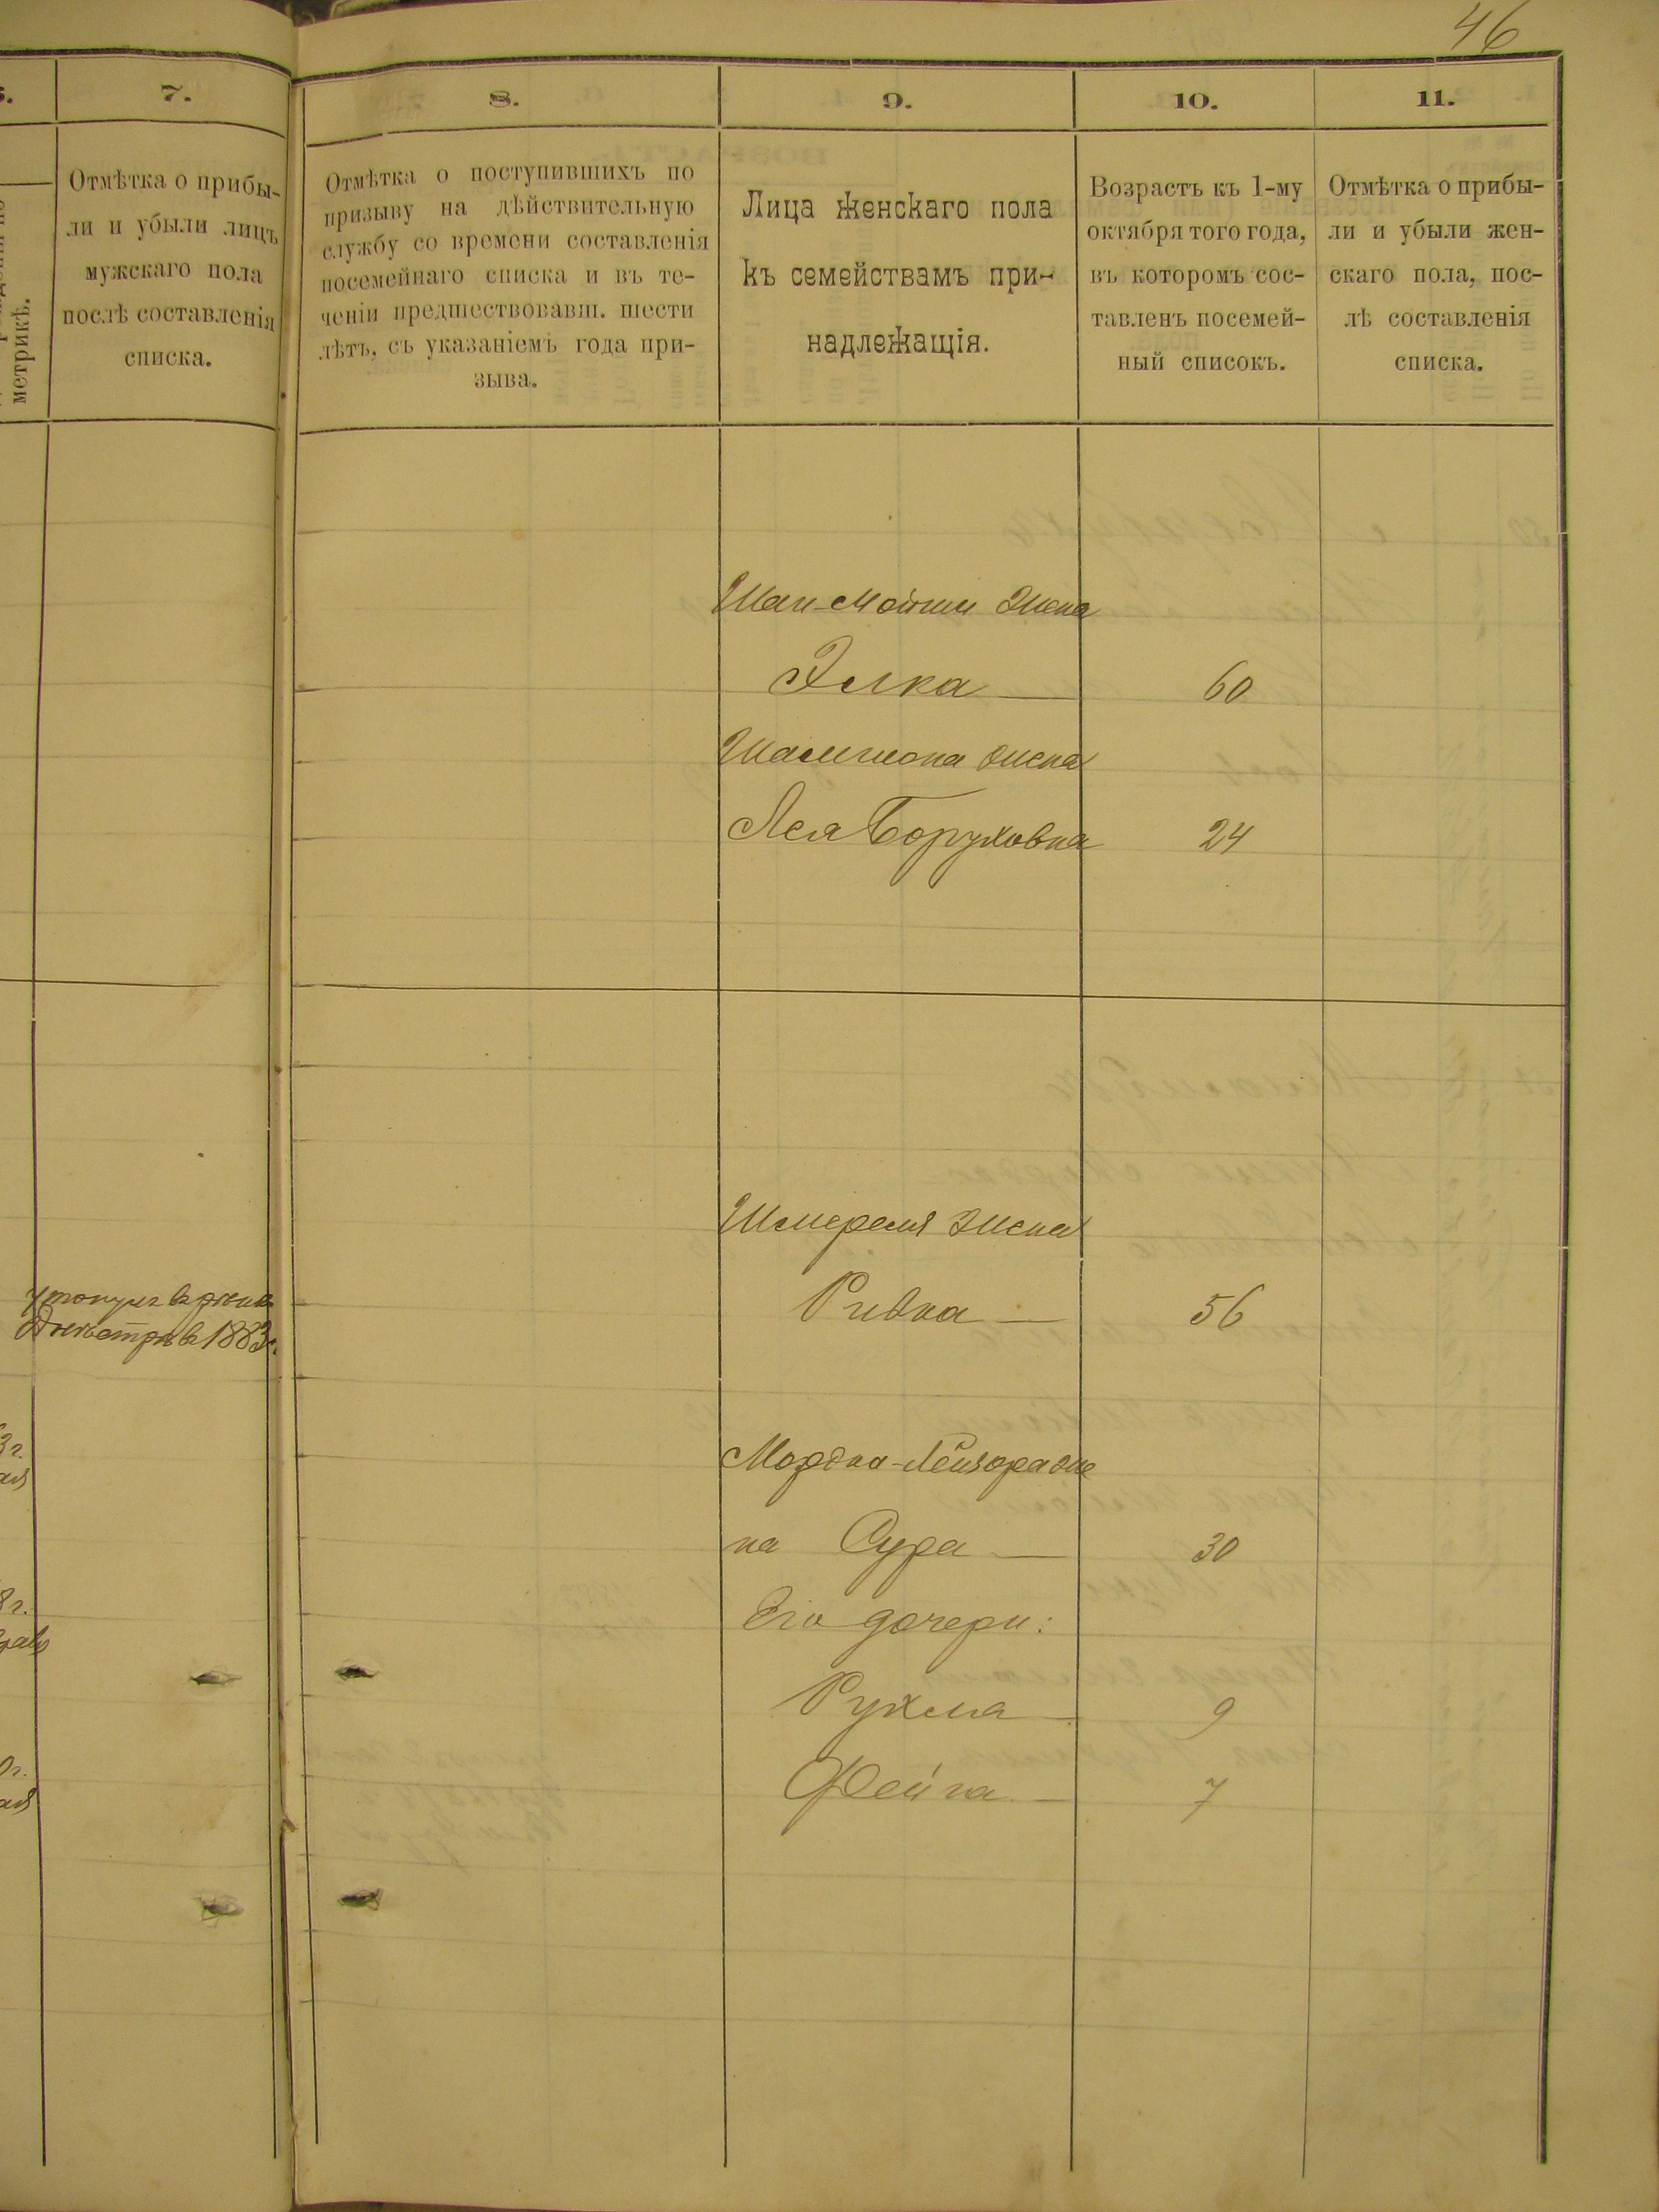 46
7.
Отмѣтка о прибы-
ли и убыли лицъ
мужскаго пола
послѣ составленія
списка.
метрикѣ.
8.
Отмѣтка о поступившихъ по
призыву на дѣйствительную
службу со времени составленія
посемейнаго списка и въ те-
ченіи предшествовавш. шести
лѣтъ, съ указаніемъ года при-
зыва.
9.
Лица женскаго пола
къ семействамъ при-
надлежащія.
10.
Возрастъ къ 1-му
октября того года,
въ которомъ сос-
тавленъ посемей-
ный списокъ.
11.
Отмѣтка о прибы-
ли и убыли жен-
скаго пола, пос-
лѣ составленія
списка.
Мошки жена
Элка 60
жена
Лея Боруховна 24
Шмереля жена
Ривка 56
1883г.
Мордка-Лейзора же
на Сура 30
Его дочери:
Рухля 9
Фейга 7